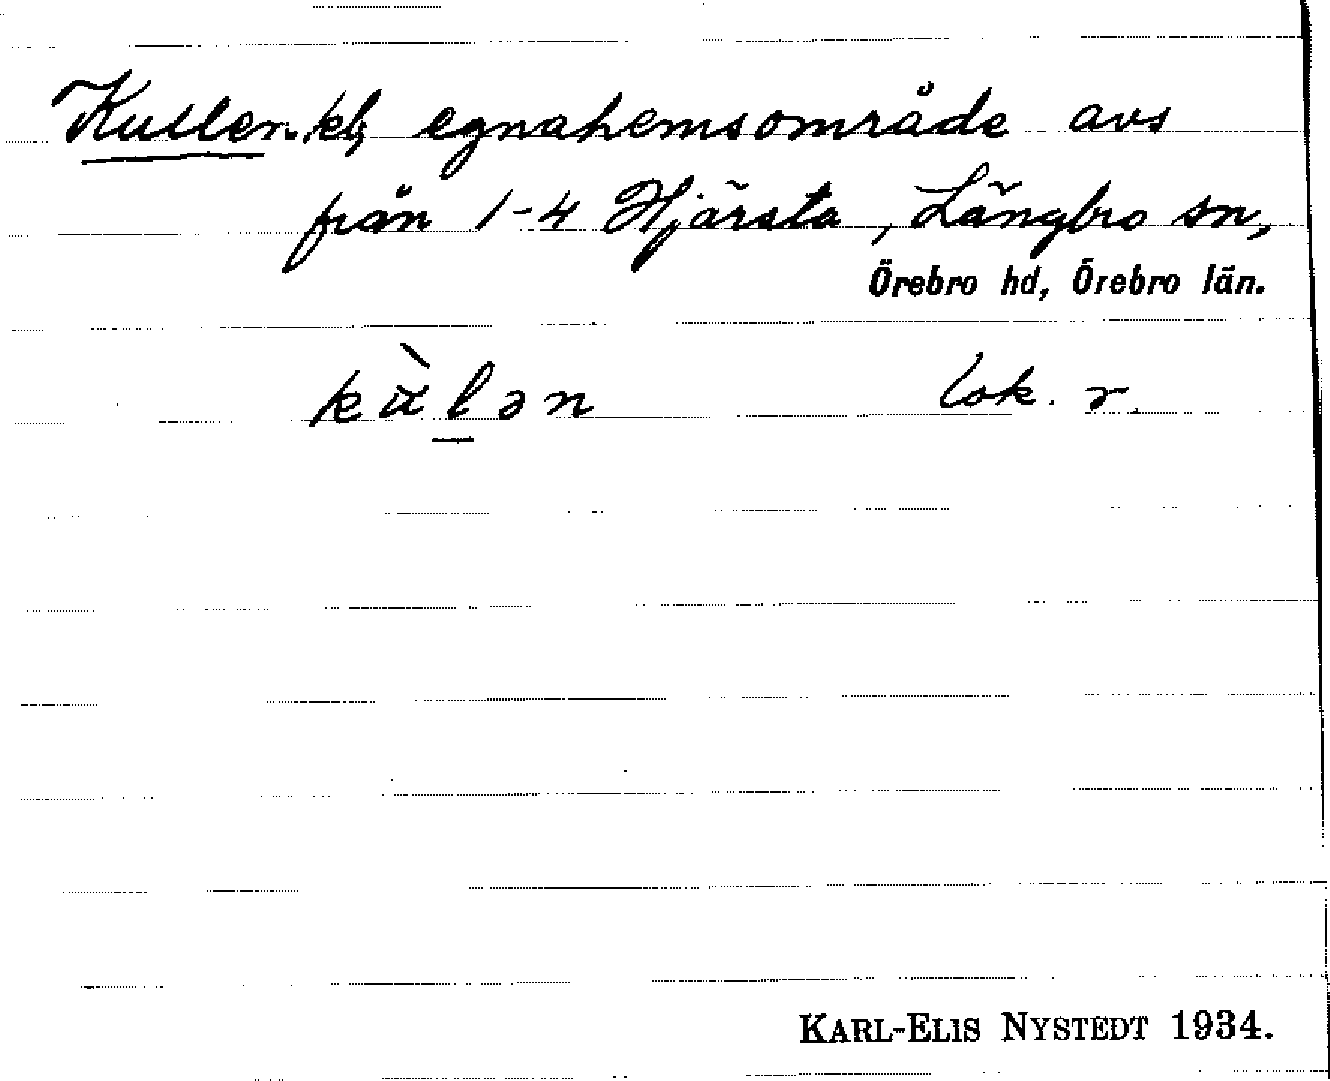 Kullen, kl, egnahemsområde avs
från 1-4 Hjärsta, Längbro sn,
Örebro hd, Örebro län.
kɯ̀lən lok. r.
KARL-ELIS NYSTEDT 1934.